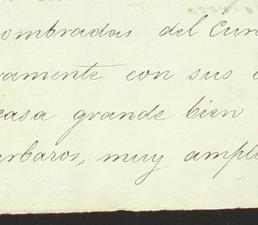 ombradas del Cun
amente con sus
casa grande bien
arbaros, muy ampli